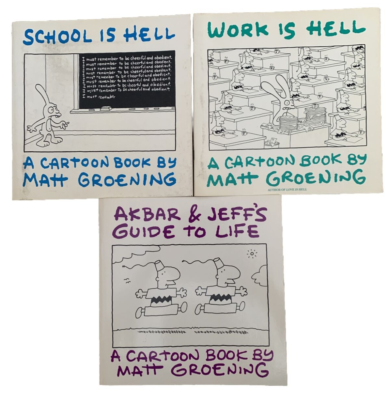 SCHOOL IS HELL
I must remember to be cheerful and obedient.
I must remember to be cheerful and obedient.
I must remember to be cheerful and obedient.
I must remember to be cheerful and obedient.
I must remember to be cheerful and obedient.
I must remember to be cheerful and obedient.
I must remember to be cheerful and obedient.
I must remember
A CARTOON BOOK BY
MATT GROENING
WORK IS HELL
A CARTOON BOOK BY
MATT GROENING
AKBAR & JEFF'S
GUIDE TO LIFE
A CARTOON BOOK BY
MATT GROENING